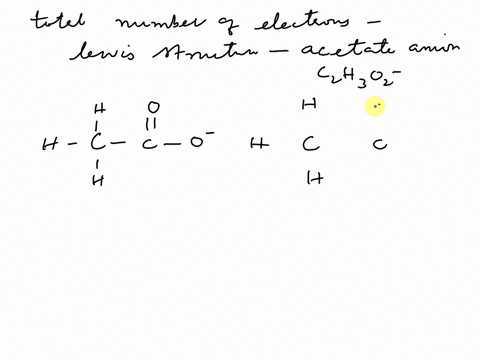 total number of electrons –
lewis structure – acetate anion
C2H3O2–
H O H
H – C – C – O– H C C
H H